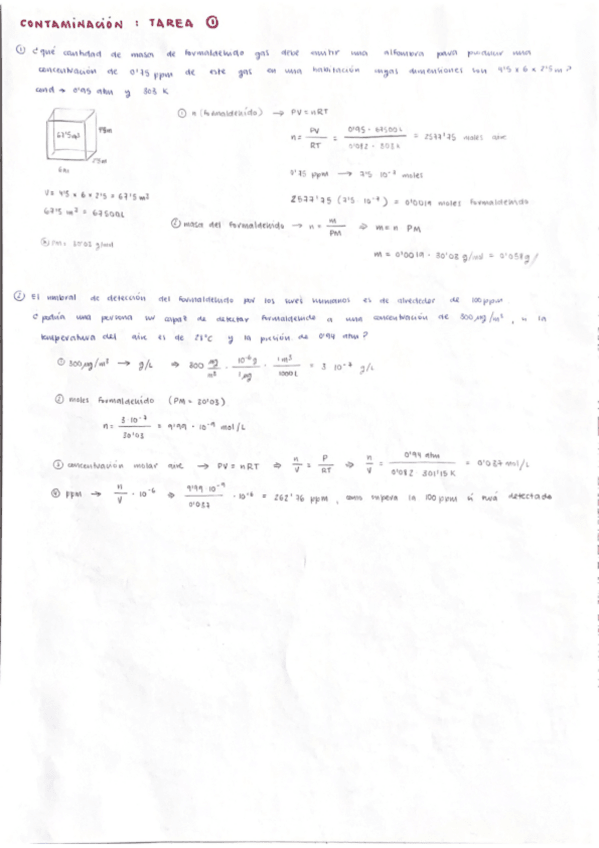 CONTAMINACIÓN : TAREA ①
① ¿qué cantidad de masa de formaldehído gas debe emitir una alfombra para producir una
concentración de 0'75 ppm de este gas en una habitación cuyas dimensiones son 4'5 x 6 x 2'5 m?
cond → 0'95 atm y 303 K
① n (formaldehído) → PV = nRT
67'5 m³
6m
n = PV / RT = 0'95 · 67500 L / 0'082 · 303 K = 2577'75 moles aire
V = 4'5 x 6 x 2'5 = 67'5 m³
67'5 m³ = 67500L
0'75 ppm → 7'5 · 10⁻⁷ moles
2577'75 (7'5 · 10⁻⁷) = 0'0019 moles formaldehído
② masa del formaldehído → n = m / PM ⇒ m = n PM
PM = 30'03 g/mol
m = 0'0019 · 30'03 g/mol = 0'058 g
② El umbral de detección del formaldehído por los seres humanos es de alrededor de 100 ppm
¿podría una persona ser capaz de detectar formaldehído a una concentración de 300 µg/m³, si la
temperatura del aire es de 28°C y la presión de 0'94 atm?
① 300 µg/m³ → g/L ⇒ 300 µg/m³ · 10⁻⁶ g / 1 µg · 1 m³ / 1000 L = 3 · 10⁻⁷ g/L
② moles formaldehído (PM = 30'03)
n = 3 · 10⁻⁷ / 30'03 = 9'99 · 10⁻⁹ mol/L
③ concentración molar aire → PV = nRT ⇒ n/V = P/RT ⇒ n/V = 0'94 atm / 0'082 · 301'15 K = 0'037 mol/L
④ ppm → n/V · 10⁻⁶ ⇒ 9'99 · 10⁻⁹ / 0'037 · 10⁻⁶ = 262'76 ppm, como supera la 100 ppm sí será detectado